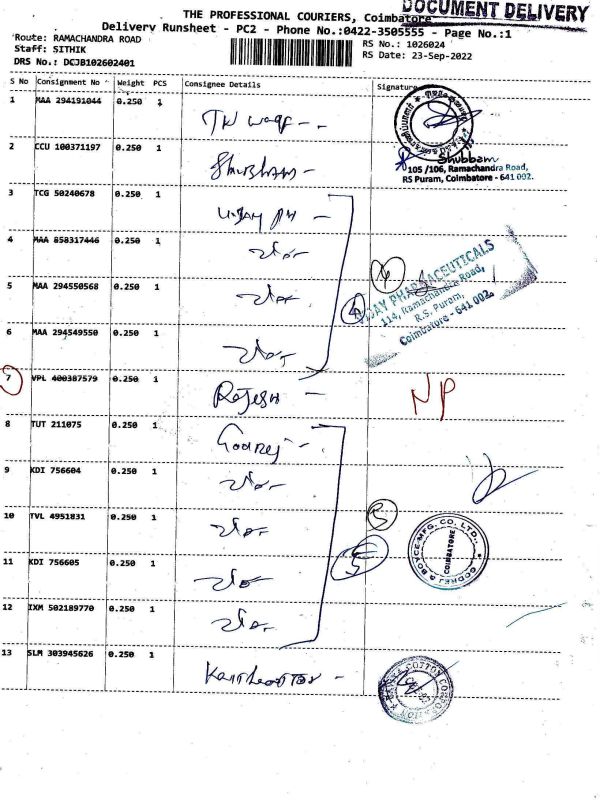 THE PROFESSIONAL COURIERS, Coimbatore
DOCUMENT DELIVERY
Delivery Runsheet - PC2 - Phone No.:0422-3505555 - Page No.:1
Route: RAMACHANDRA ROAD
RS No.: 1026024
Staff: SITHIK
RS Date: 23-Sep-2022
DRS No.: DCJB102602401
S No Consignment No Weight PCS Consignee Details Signature
1 MAA 294191044 0.250 1
TN waqf
2 CCU 100371197 0.250 1 Shubham
Shubham
105 /106, Ramachandra Road,
RS Puram, Coimbatore - 641 002.
3 TCG 50240678 0.250 1 Vijay PH
4 MAA 858317446 0.250 1
5 MAA 294550568 0.250 1
4
VIJAY PHARMACEUTICALS
114, Ramachandra Road,
R.S. Puram,
Coimbatore - 641 002.
6 MAA 294549550 0.250 1
7 VPL 400387579 0.250 1 Rajesh NP
8 TUT 211075 0.250 1 Godrej
9 KDI 756604 0.250 1
10 TVL 4951831 0.250 1
5
GODREJ & BOYCE MFG. CO. LTD.,
COIMBATORE
11 KDI 756605 0.250 1
12 IXM 502189770 0.250 1
13 SLM 303945626 0.250 1
COTTON CORPORATION